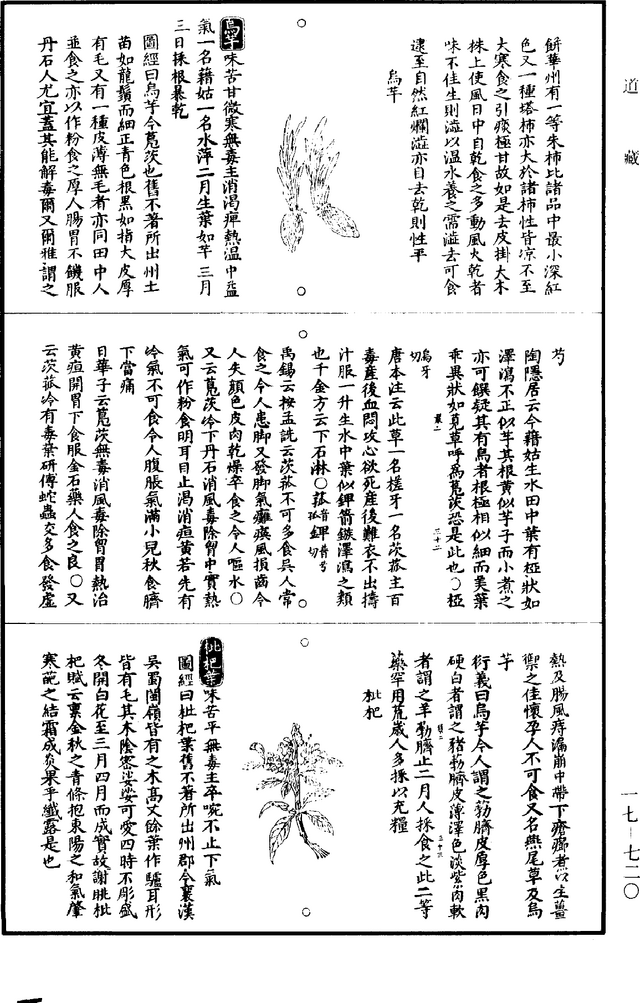 道藏
餅華州有一等朱柿比諸品中最小深紅
色又一種塔柿亦大於諸柿性皆凉不至
大寒食之引痰極甘故如是去皮掛大木
株上使風日中自乾食之多動風火乾者
味不佳生則澁以温水養之需澁去可食
逮至自然紅爛澁亦自去乾則性平
烏芋
烏芋味苦甘微寒無毒主消渴痺熱温中益
氣一名藉姑一名水萍二月生葉如芋三月
三日採根暴乾
圖經曰烏芋今鳧茨也舊不著所出州土
苗如龍鬚而細正青色根黑如指大皮厚
有毛又有一種皮薄無毛者亦同田中人
並食之亦以作粉食之厚人腸胃不饑服
丹石人尤宜蓋其能解毒爾又爾雅謂之
芍
陶隱居云今藉姑生水田中葉有椏狀如
澤瀉不正似芋其根黄似芋子而小煮之
亦可饌疑其有烏者根極相似細而美葉
乖異狀如莧草呼爲鳧茨恐是此也○椏
烏牙切
唐本注云此草一名槎牙一名茨菰主百
毒産後血悶攻心欲死産後難衣不出擣
汁服一升生水中葉似鉀箭鏃澤瀉之類
也千金方云下石淋○菰音孤鉀普兮切
禹錫云按孟詵云茨菰不可多食吳人常
食之令人患脚又發脚氣癱瘓風損齒令
人失顔色皮肉乾燥卒食之令人嘔水○
又云鳧茨冷下丹石消風毒除胷中實熱
氣可作粉食明耳目止渴消疸黄若先有
冷氣不可食令人腹脹氣滿小兒秋食臍
下當痛
日華子云鳧茨無毒消風毒除胷胃熱治
黄疸開胃下食服金石藥人食之良○又
云茨菰冷有毒葉研傅蛇蟲交多食發虚
熱及腸風痔瘻崩中帶下瘡癤煮以生薑
禦之佳懷孕人不可食又名燕尾草及烏
芋
衍義曰烏芋今人謂之葧臍皮厚色黑肉
硬白者謂之猪葧臍皮薄澤色淡紫肉軟
者謂之羊葧臍正二月人採食之此二等
藥罕用荒歲人多採以充糧
枇杷
枇杷葉味苦平無毒主卒啘不止下氣
圖經曰枇杷葉舊不著所出州郡今襄漢
吳蜀閩嶺皆有之木高丈餘葉作驢耳形
皆有毛其木陰密婆娑可愛四時不彫盛
冬開白花至三月四月而成實故謝朓枇
杷賦云禀金秋之青條抱東陽之和氣肇
寒葩之結霜成炎果乎纖露是也
一七-七二〇